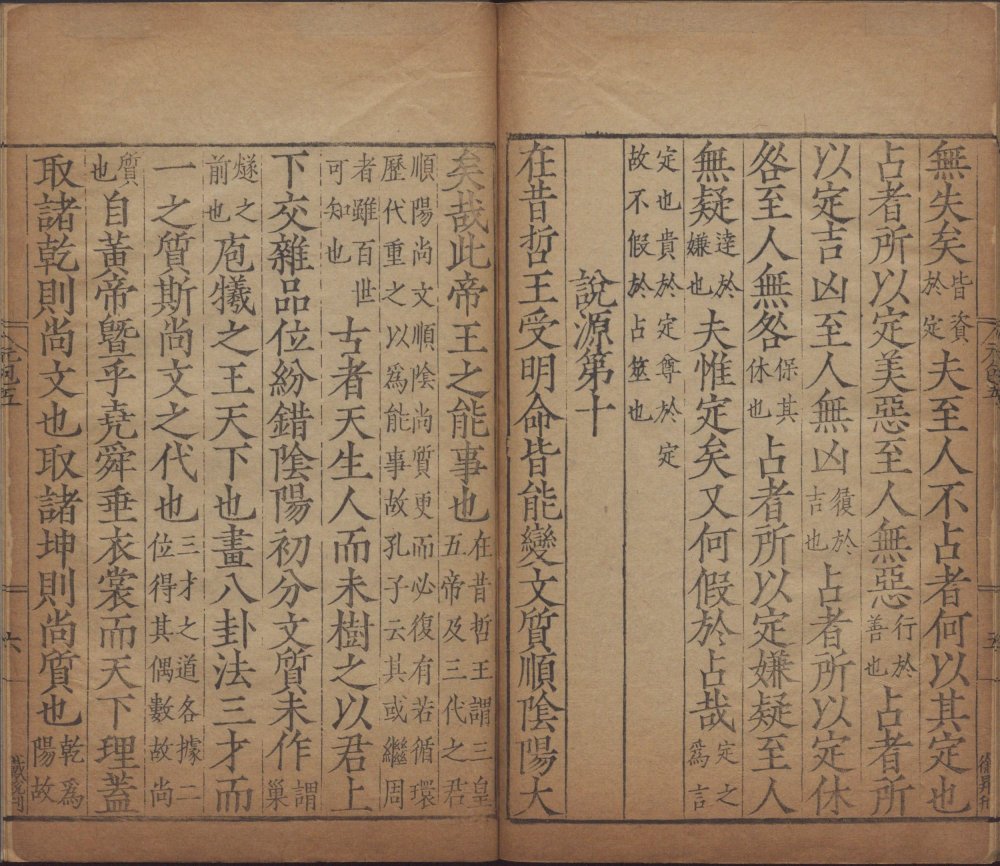 無失矣皆資於定夫至人不占者何以其定也
占者所以定美惡至人無惡行於善也占者所
以定吉凶至人無凶於吉也占者所以定休
咎至人無咎保其休也占者所以定嫌疑至人
無疑達於嫌也夫惟定矣又何假於占哉定之爲言
定也貴於定尊於定故不假於占筮也
說源第十
在昔哲王受明命皆能變文質順陰陽大
五
矣哉此帝王之能事也在昔哲王謂三皇五帝及三代之君
順陽尚文順陰尚質更而必復有若循環歷代重之以爲能事故孔子云其或繼周
者雖百世可知也古者天生人而未樹之以君上
下交雜品位紛錯陰陽初分文質未作謂巢
燧之前也庖犧之王天下也畫八卦法三才而
一之質斯尚文之代也三才之道各據二位得其偶數故尚
質也自黃帝暨乎堯舜垂衣裳而天下理蓋
取諸乾則尚文也取諸坤則尚質也乾爲陽故
六